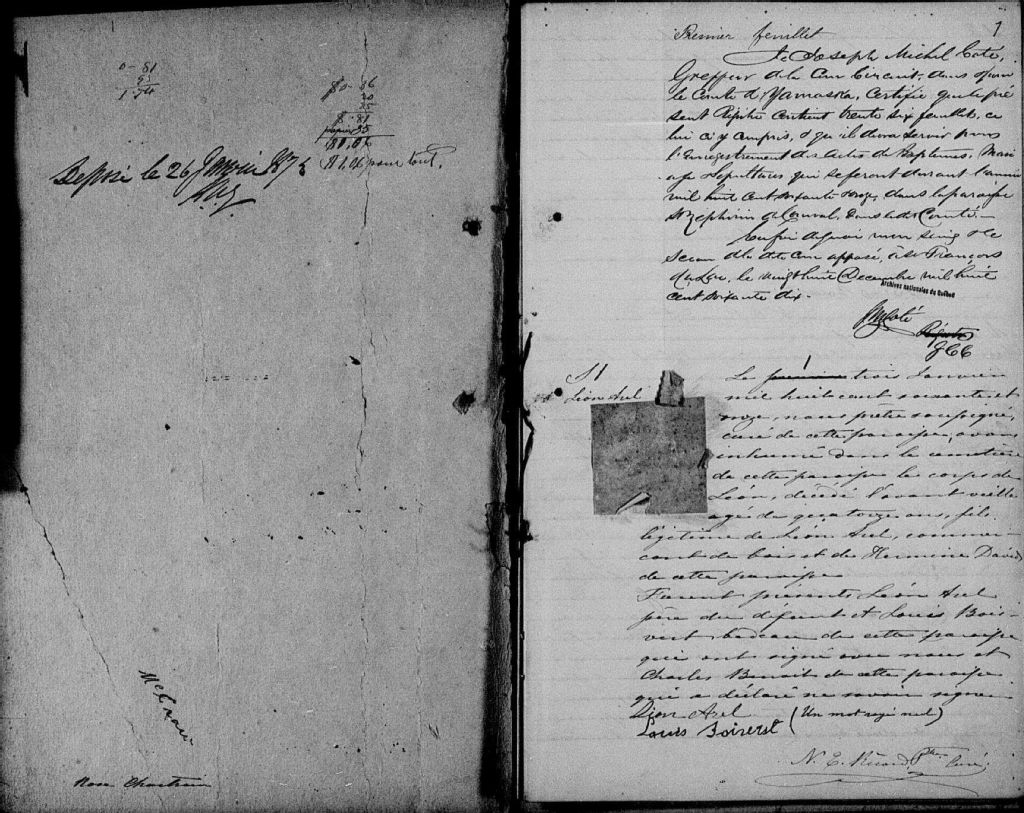 0-81
95
1-74
$0-86
20
25
$-81
papier 25
$1,06
$1,06 pour tout.
Deposé le 26 Janvier 187
McCraw
Rose Chartrain
1
Premier feuillet
Je Joseph Michel Coté,
Greffier de la Cour Circuit, dans & pour
le Comté d'Yamaska, Certifie que le pré
sent Régistre contient trente six feuillets, ce
lui ci y compris, & qu'il devra servir pour
l'Enregistrement des Actes de Baptêmes, Mari
age & Sepultures qui se feront durant l'année
mil huit cent soixante & onze, dans la paroisse
St Zephirin de Courval, dans le dit Comté.—
En foi de quoi mon seing & le
Sceau de la dite Cour apposé, à St François
du Lac, le vingt huit Decembre mil huit
cent soixante dix.
Archives nationales du Québec
JMCoté
GCC
S1
Léon Axel
Le premier trois Janvier
mil huit cent soixante et
onze, nous prêtre soussigné,
curé de cette paroisse, avons
inhumé dans le cimetière
de cette paroisse le corps de
Léon, décédé l'avant veille
agé de quatorze ans, fils
légitime de Léon Axel, commer-
çant de bois et de Hermine David
de cette paroisse
Furent présents Léon Axel
père du défunt et Louis Bois-
vert bedeau de cette paroisse
qui ont signé avec nous et
Charles Benoit de cette paroisse
qui a déclaré ne savoir signer
Léon Axel (Un mot rayé nul)
Louis Boisvert
N. E. Ricard Ptre Curé